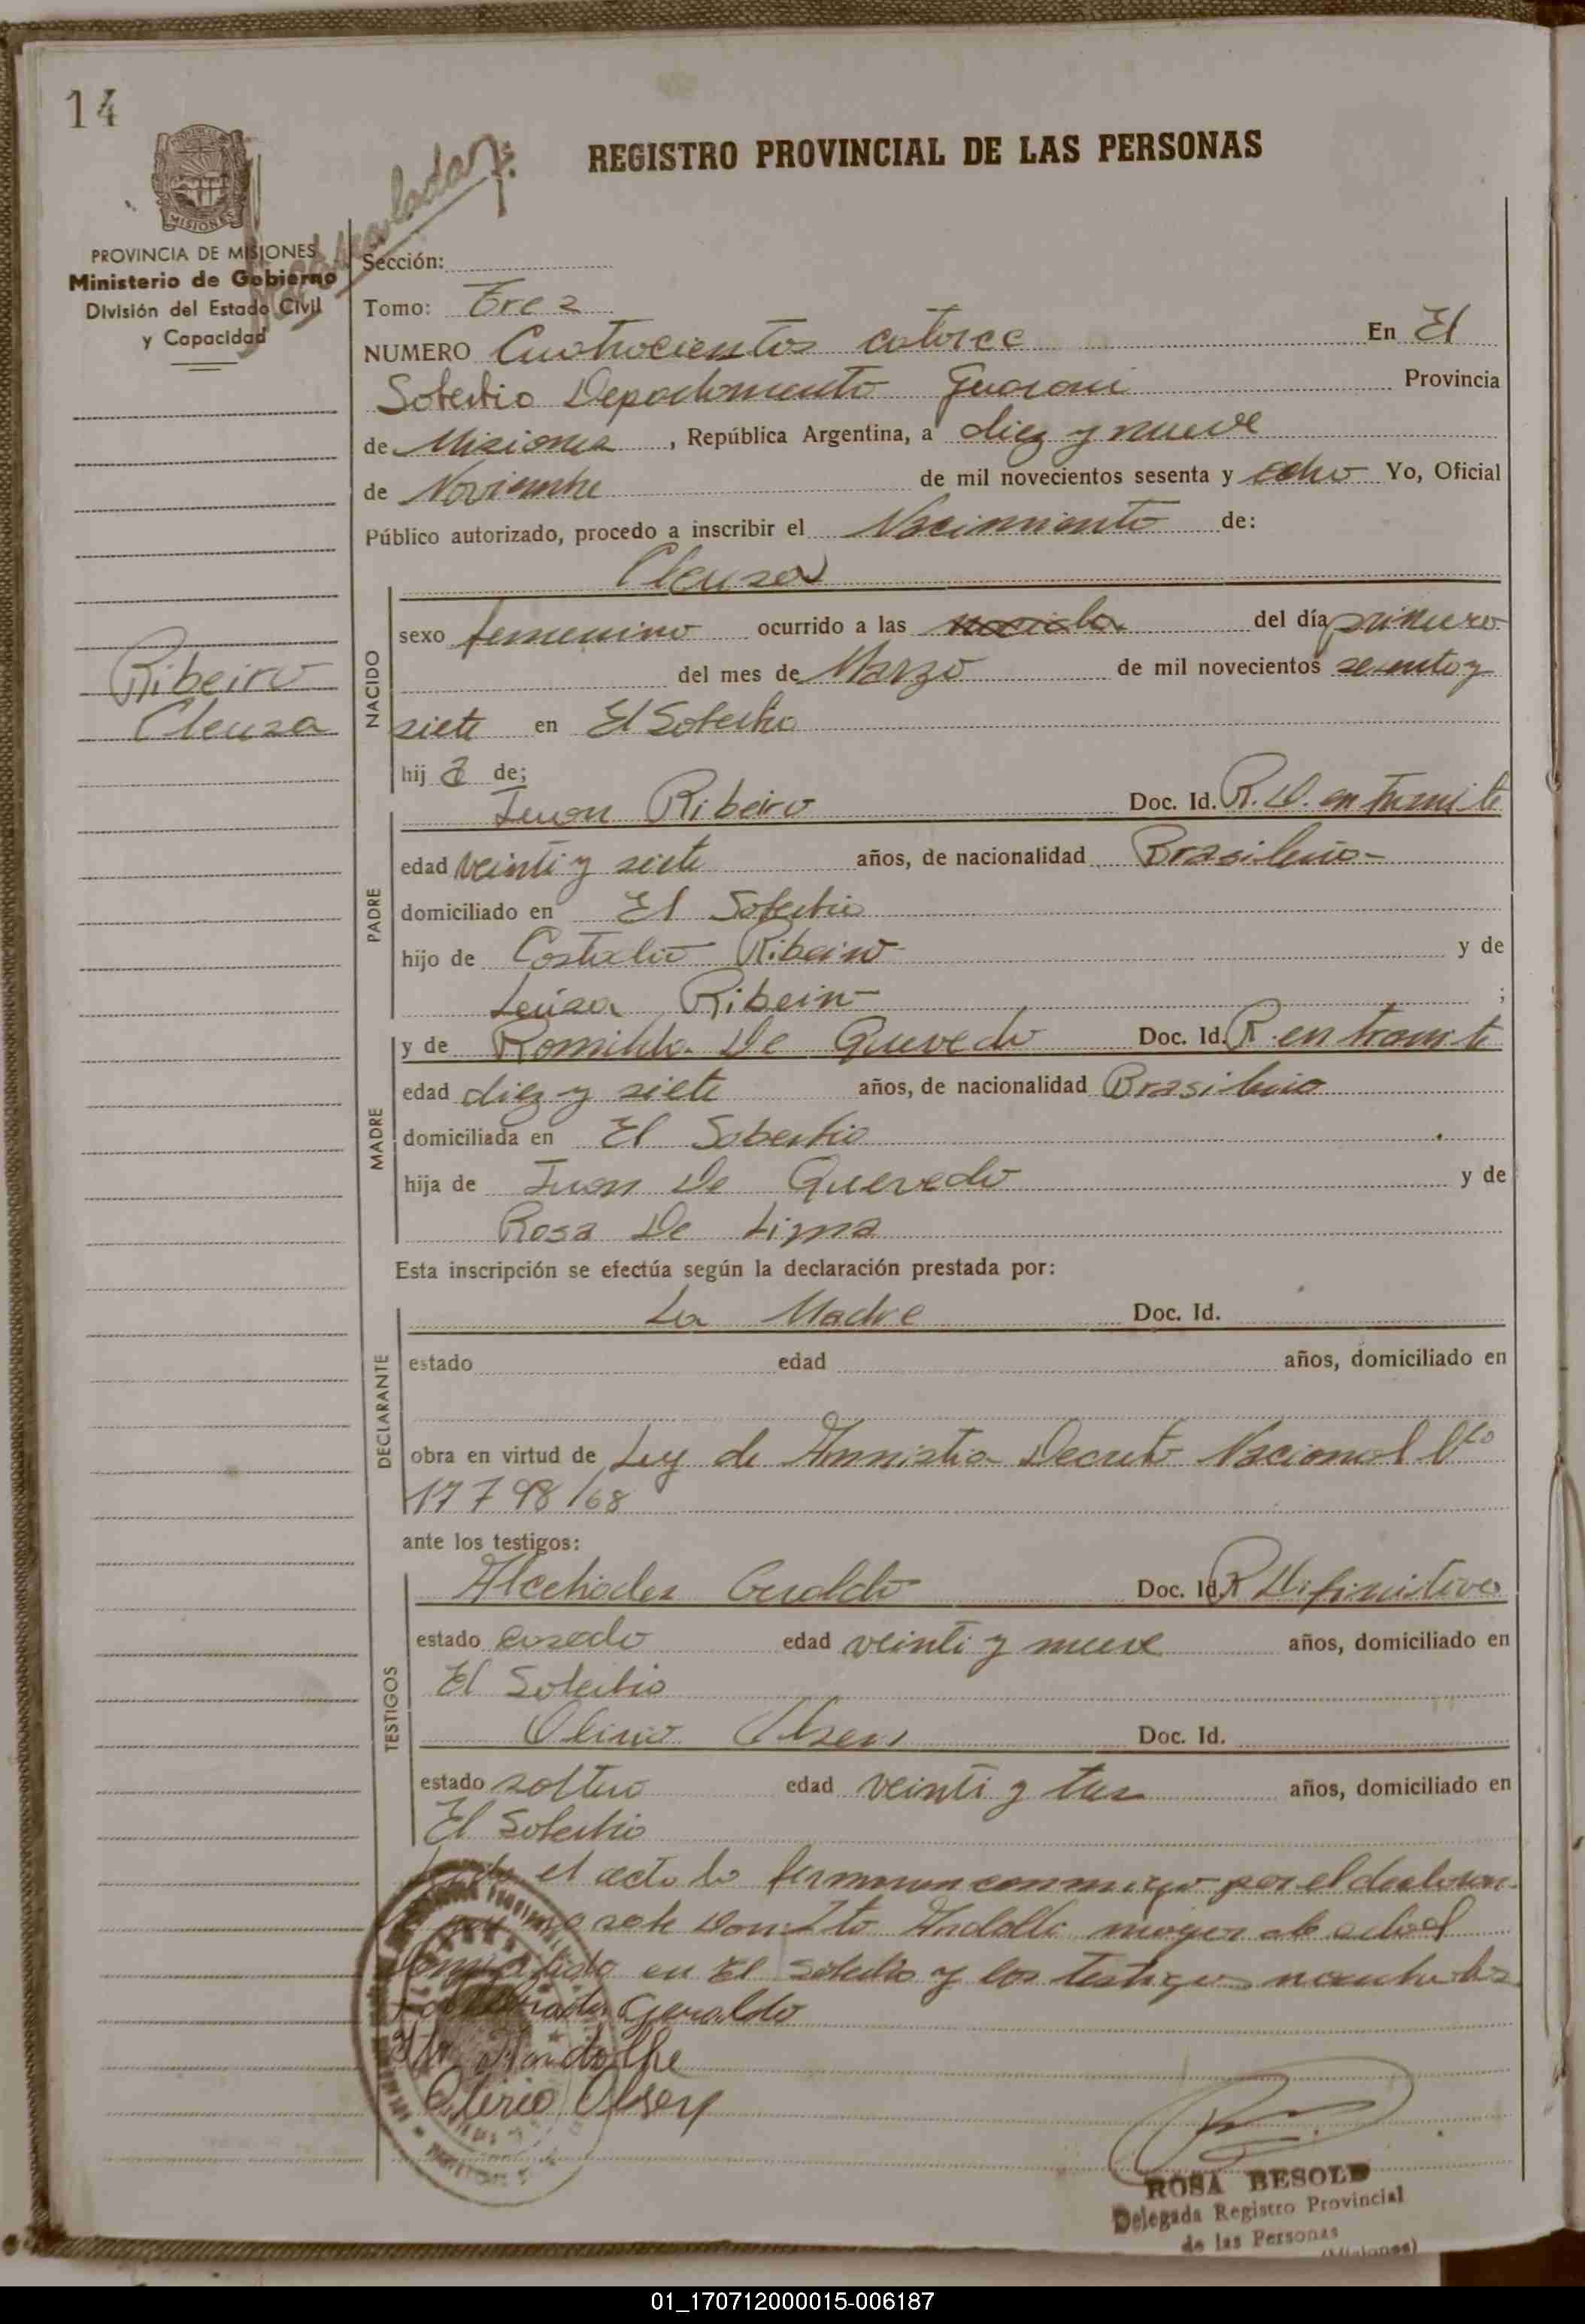 14
REGISTRO PROVINCIAL DE LAS PERSONAS
MISIONES
PROVINCIA DE MISIONES
Ministerio de Gobierno
División del Estado Civil
y Capacidad
Sección:
Tomo: Tres
NUMERO Cuatrocientos catorce En El
Soberbio Departamento Guarani Provincia
de Misiones, República Argentina, a diez y nueve
de Noviembre de mil novecientos sesenta y ocho Yo, Oficial
Público autorizado, procedo a inscribir el Nacimiento de:
Cleusa
NACIDO
sexo femenino ocurrido a las del día primero
del mes de Marzo de mil novecientos sesenta y
Ribeiro
Cleuza
siete en El Soberbio
hij a de;
PADRE
Juan Ribeiro Doc. Id. R.D. en tramite
edad veinti y siete años, de nacionalidad Brasileña
domiciliado en El Soberbio
hijo de Ribeiro y de
Ribeiro ;
MADRE
y de Romilda De Quevedo Doc. Id. R en tramite
edad diez y siete años, de nacionalidad Brasileña
domiciliada en El Soberbio
hija de Juan De Quevedo y de
Rosa De Lima
Esta inscripción se efectúa según la declaración prestada por:
DECLARANTE
La Madre Doc. Id.
estado edad años, domiciliado en
obra en virtud de Ley de Amnistia Decreto Nacional
17798/68
ante los testigos:
TESTIGOS
Doc. Id. R Difinitiva
estado casado edad veinti y nueve años, domiciliado en
El Soberbio
Olirio Olsen Doc. Id.
estado soltero edad veinti y tres años, domiciliado en
El Soberbio
el acta la firman conmigo por el declaran
mayor de edad
en El Soberbio y los testigos
Geraldo
Olirio Olsen
ROSA BESOLD
Delegada Registro Provincial
de las Personas
(Misiones)
01_170712000015-006187